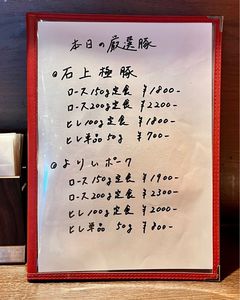 本日の厳選豚
◎石上極豚
ロース150g定食 ¥1800-
ロース200g定食 ¥2200-
ヒレ100g定食 ¥1800-
ヒレ単品 50g ¥700-
◎よりいポーク
ロース150g定食 ¥1900-
ロース200g定食 ¥2300-
ヒレ100g定食 ¥2000-
ヒレ単品 50g ¥800-